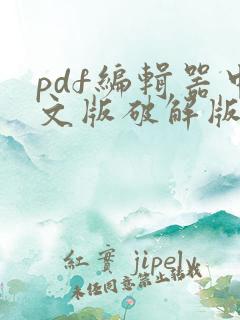 pdf编辑器中
文版破解版
红实 jipelv
未经同意禁止转载